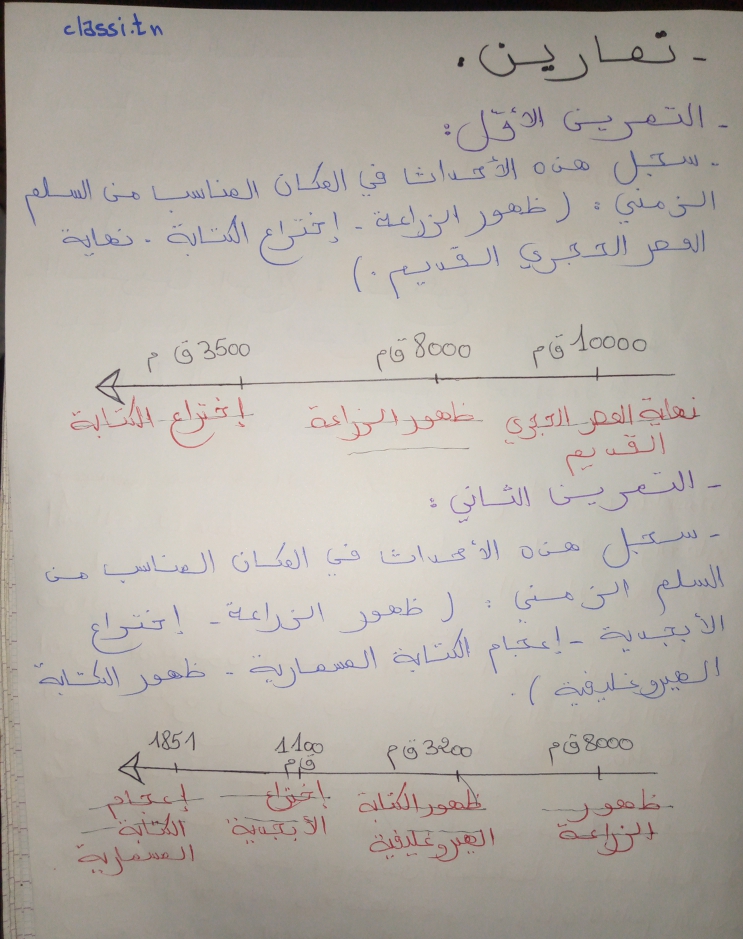 classi.tn
- تمارين.
- التمرين الأوّل:
- سجل هذه الأحداث في المكان المناسب من السلم
الزمني: (ظهور الزراعة - إختراع الكتابة - نهاية
العصر الحجري القديم.)
10000 ق م 8000 ق م 3500 ق م
نهاية العصر الحجري ظهور الزراعة إختراع الكتابة
القديم
- التمرين الثاني:
- سجل هذه الأحداث في المكان المناسب من
السلم الزمني: (ظهور الزراعة - إختراع
الأبجدية - إعجام الكتابة المسمارية - ظهور الكتابة
الهيروغليفية).
8000 ق م 3200 ق م 1100 ق م 1851
ظهور ظهور الكتابة إختراع إعجام
الزراعة الهيروغليفية الأبجدية الكتابة
المسمارية